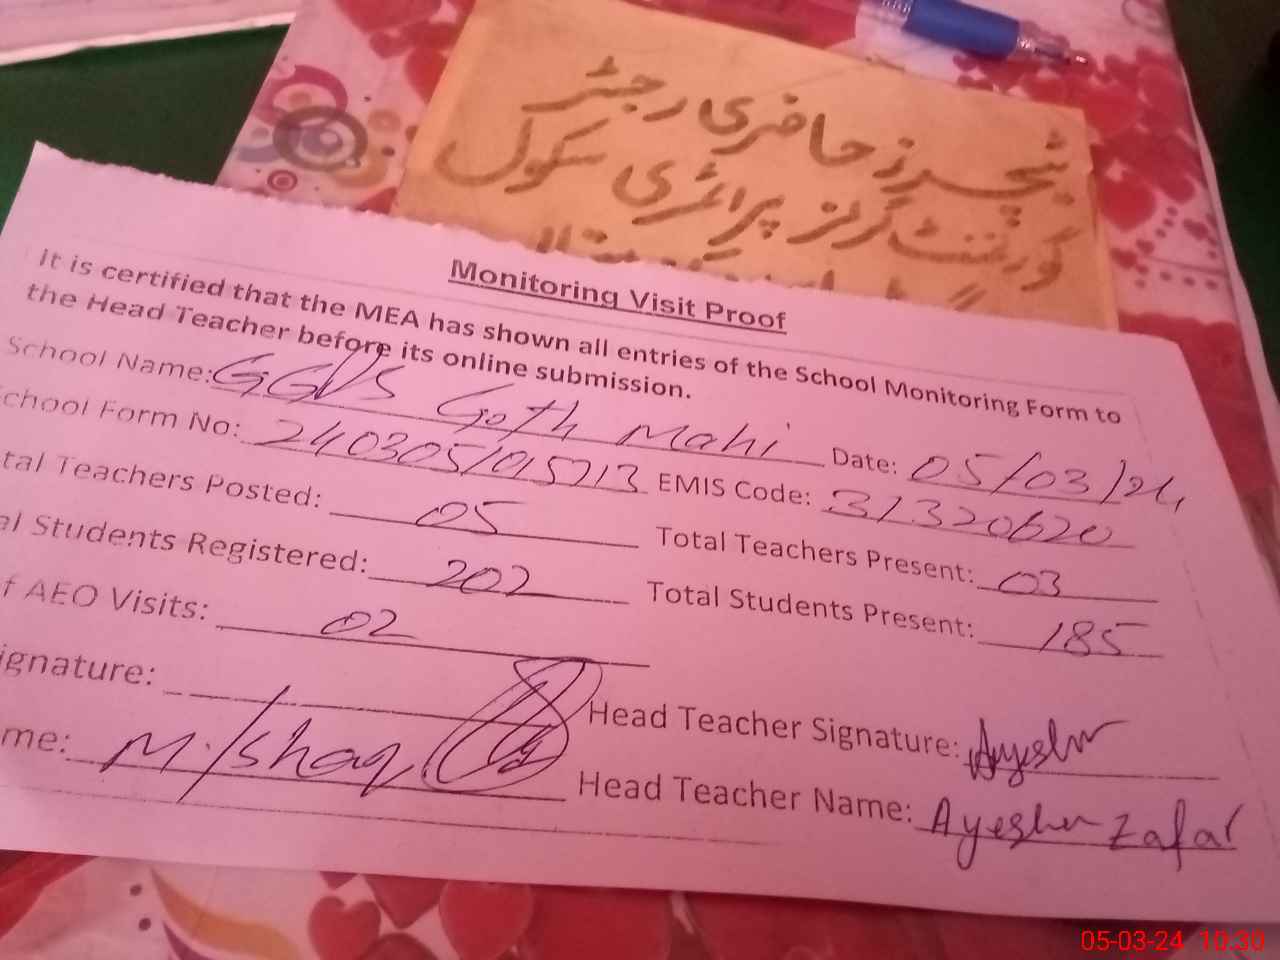 ٹیچرز حاضری رجسٹر
گورنمنٹ گرلز پرائمری سکول
Monitoring Visit Proof
It is certified that the MEA has shown all entries of the School Monitoring Form to
the Head Teacher before its online submission.
School Name: GGPS Goth Mahi Date: 05/03/24
chool Form No: 240305/015713 EMIS Code: 31320620
tal Teachers Posted: 05 Total Teachers Present: 03
al Students Registered: 202 Total Students Present: 185
f AEO Visits: 02
ignature: Head Teacher Signature: Ayesha
me: M. Ishaq Head Teacher Name: Ayesha Zafar
05-03-24 10:30